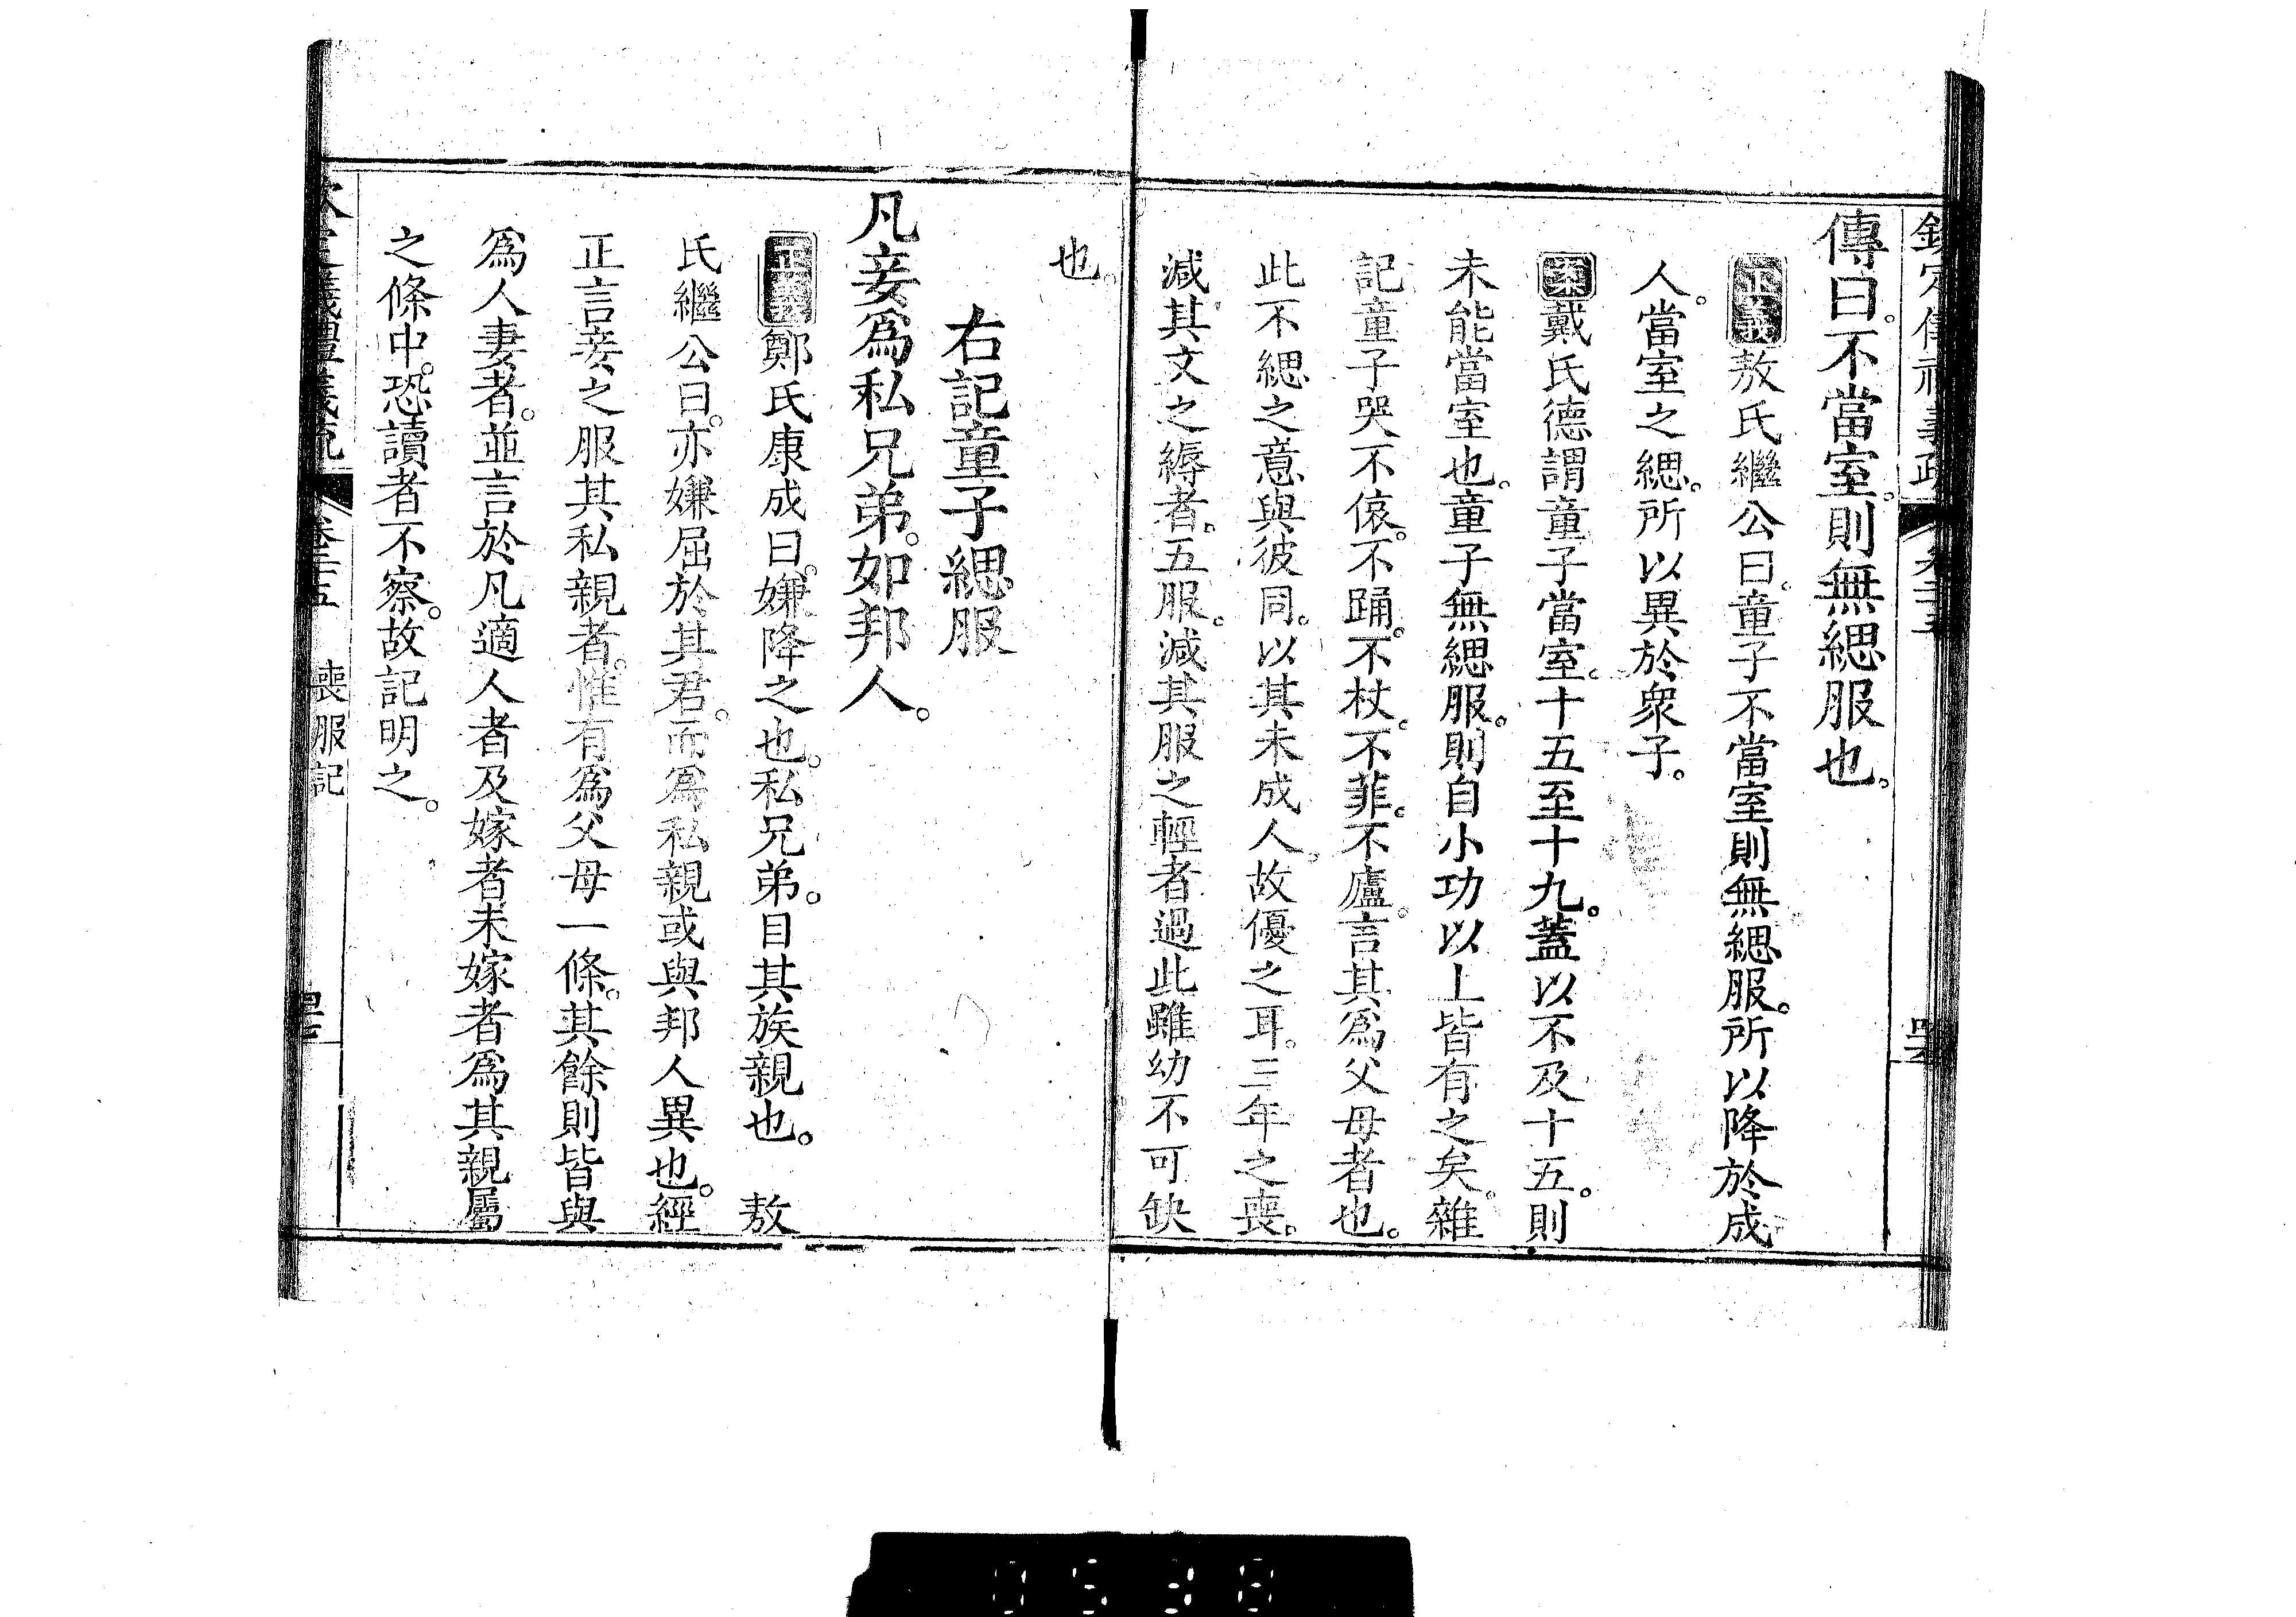 欽定儀禮義疏 卷二十五
傳曰。不當室。則無緦服也。
正義敖氏繼公曰。童子不當室則無緦服。所以降於成
人。當室之緦。所以異於衆子。
案戴氏德謂童子當室。十五至十九。蓋以不及十五。則
未能當室也。童子無緦服。則自小功以上皆有之矣。雜
記童子哭不偯。不踊。不杖。不菲。不廬。言其爲父母者也。
此不緦之意與彼同。以其未成人。故優之耳。三年之喪。
減其文之縟者。五服。減其服之輕者過此雖幼不可缺
也。
右記童子緦服
凡妾爲私兄弟。如邦人。
正義鄭氏康成曰。嫌降之也。私兄弟。目其族親也。 敖
氏繼公曰。亦嫌屈於其君。而爲私親或與邦人異也。經
正言妾之服其私親者。惟有爲父母一條。其餘則皆與
爲人妻者。並言於凡適人者及嫁者未嫁者爲其親屬
之條中。恐讀者不察。故記明之。
欽定儀禮義疏 卷二十五 喪服記
0538